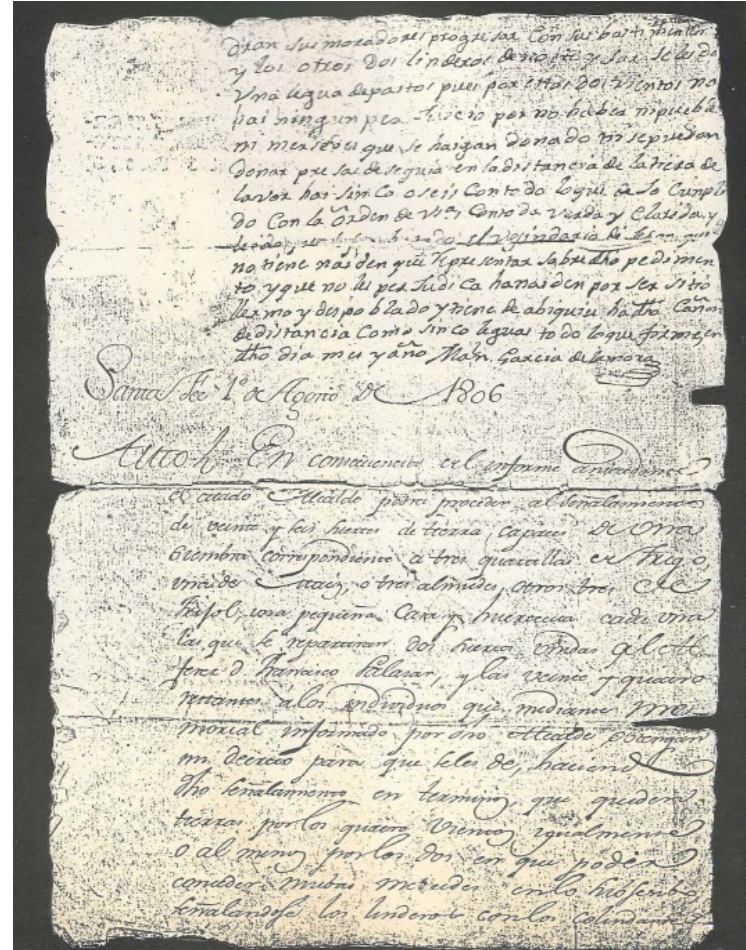 dran sus moradores progresar con sus bastimentos
y los otros dos linderos de norte y sur se les do
una legua de pastos pues por estos dos vientos no
hai ningun perjuicio por no haber ni pueble
ni mersedes que se haigan donado ni se puedan
donar presas de sequia en la distancia de la tiera de
lavor hai sinco o seis con todo lo que deJo Cunpli
do Con la orden de Con toda verda y Clarida y
el vesindario de
no tiene naiden que representar sobre dho pedimen
to, y que no les perJudica ha naiden por ser sitio
llermo y despoblado y tiene de abiquiu ha dho Cañon
de distancia Como sinco leguas todo lo que firme en
dho dia mes y año Man. Garcia de la mora
Santa Fée 1º de Agosto de 1806
Autto En consecuencia del informe antecedente
el citado Alcalde podrá proceder al señalamiento
de veinte y seis suertes de tierra capaces de una
siembra correspondiente á tres quartillas de Trigo,
una de Maiz, o tres almudes, otros tres de
Frisol, una pequeña Casa y huertecita cada una
las que se repartiran dos suertes unidas al Al
ferez dn Francisco Salazar, y las veinte y quatro
restantes a los individuos que mediante me
morial informado por dho Alcalde obtengan
mi decreto para que se les de, haciendo
dho señalamiento en terminos que queden
tierras por los quatro vientos igualmente
o al menos por los dos en que poder
conceder nuebas mercedes en lo
señalandose los linderos con los colindantes